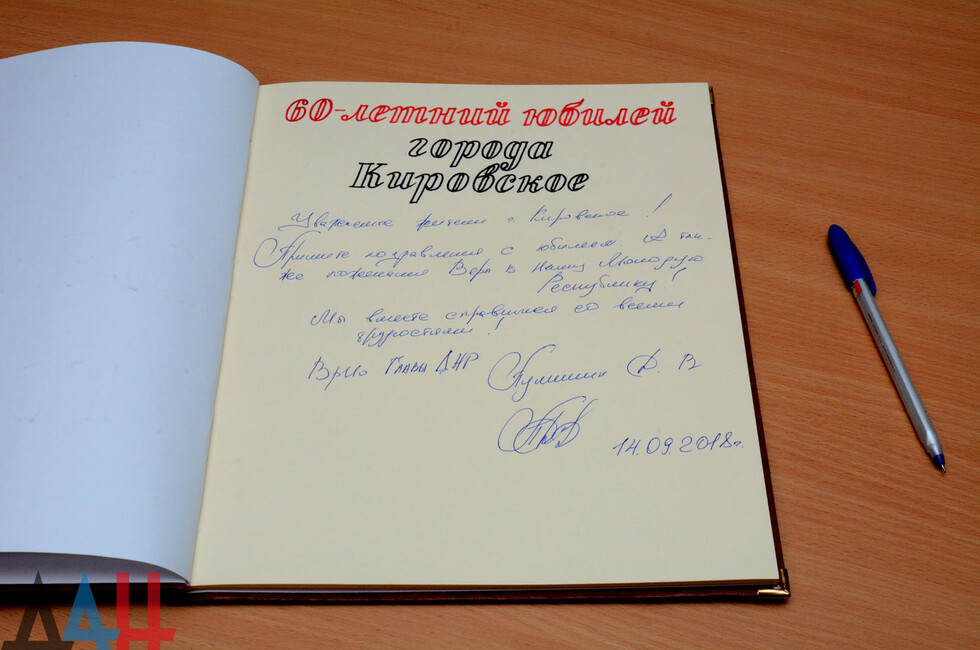 60-летний юбилей
города
Кировское
Уважаемые жители г. Кировское!
Примите поздравления с юбилеем. А так-
же пожелания Веры в Нашу Молодую
Республику!
Мы вместе справимся со всеми
трудностями!
Врио Главы ДНР Пушилин Д. В
14.09.2018г.
ДАН